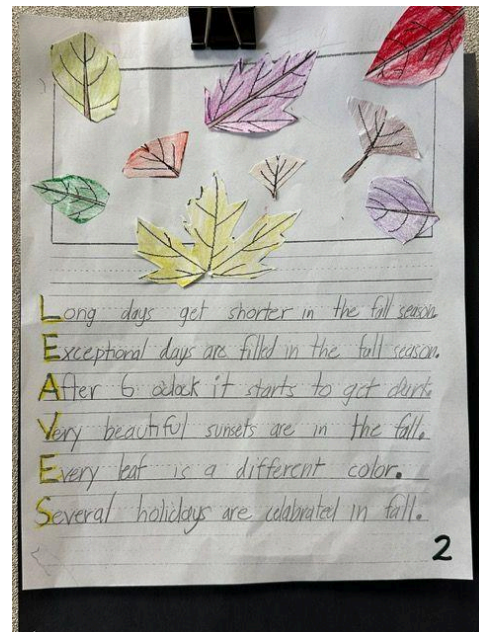 Long days get shorter in the fall season.
Exceptional days are filled in the fall season.
After 6 oclock it starts to get dark.
Very beautiful sunsets are in the fall.
Every leaf is a different color.
Several holidays are celabrated in fall.
2